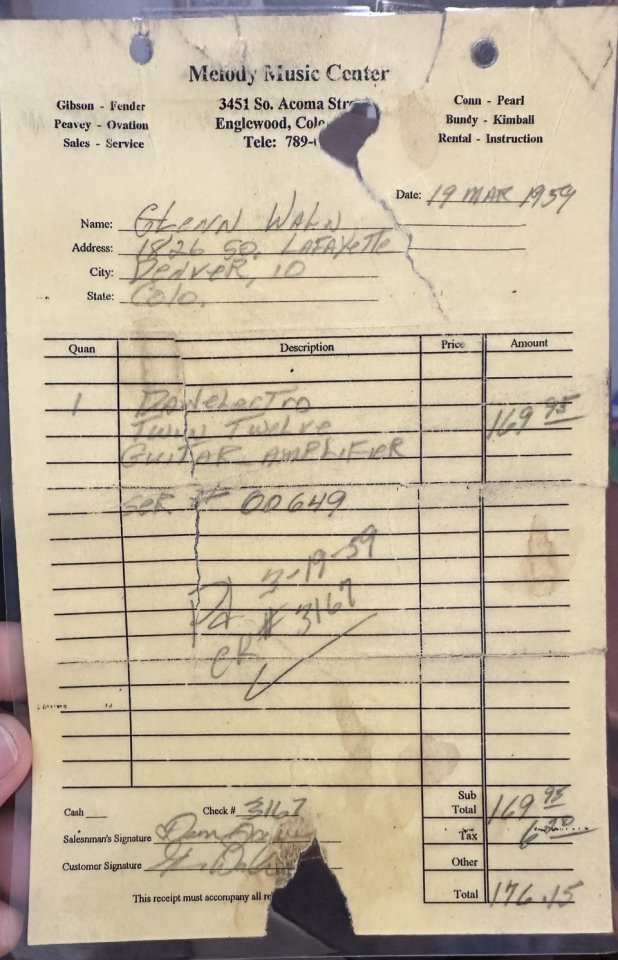 Melody Music Center
Gibson - Fender
Peavey - Ovation
Sales - Service
3451 So. Acoma
Englewood,
Tele: 789-
Conn - Pearl
Bundy - Kimball
Rental - Instruction
Date: 19 MAR 1959
Name: GLENN WALN
Address: 1826 SO. LAFAYETTE
City: DENVER, 10
State: COLO.
Quan Description Price Amount
1 DANELECTRO 169 95
TWIN TWELVE
GUITAR AMPLIFIER
SER # 00649
Pd 3-19-59
CK # 3167
Sub
Total 169 95
Cash Check # 3167
Tax 6 20
Salesnman's Signature
Other
Customer Signature
Total 176.15
This receipt must accompany all